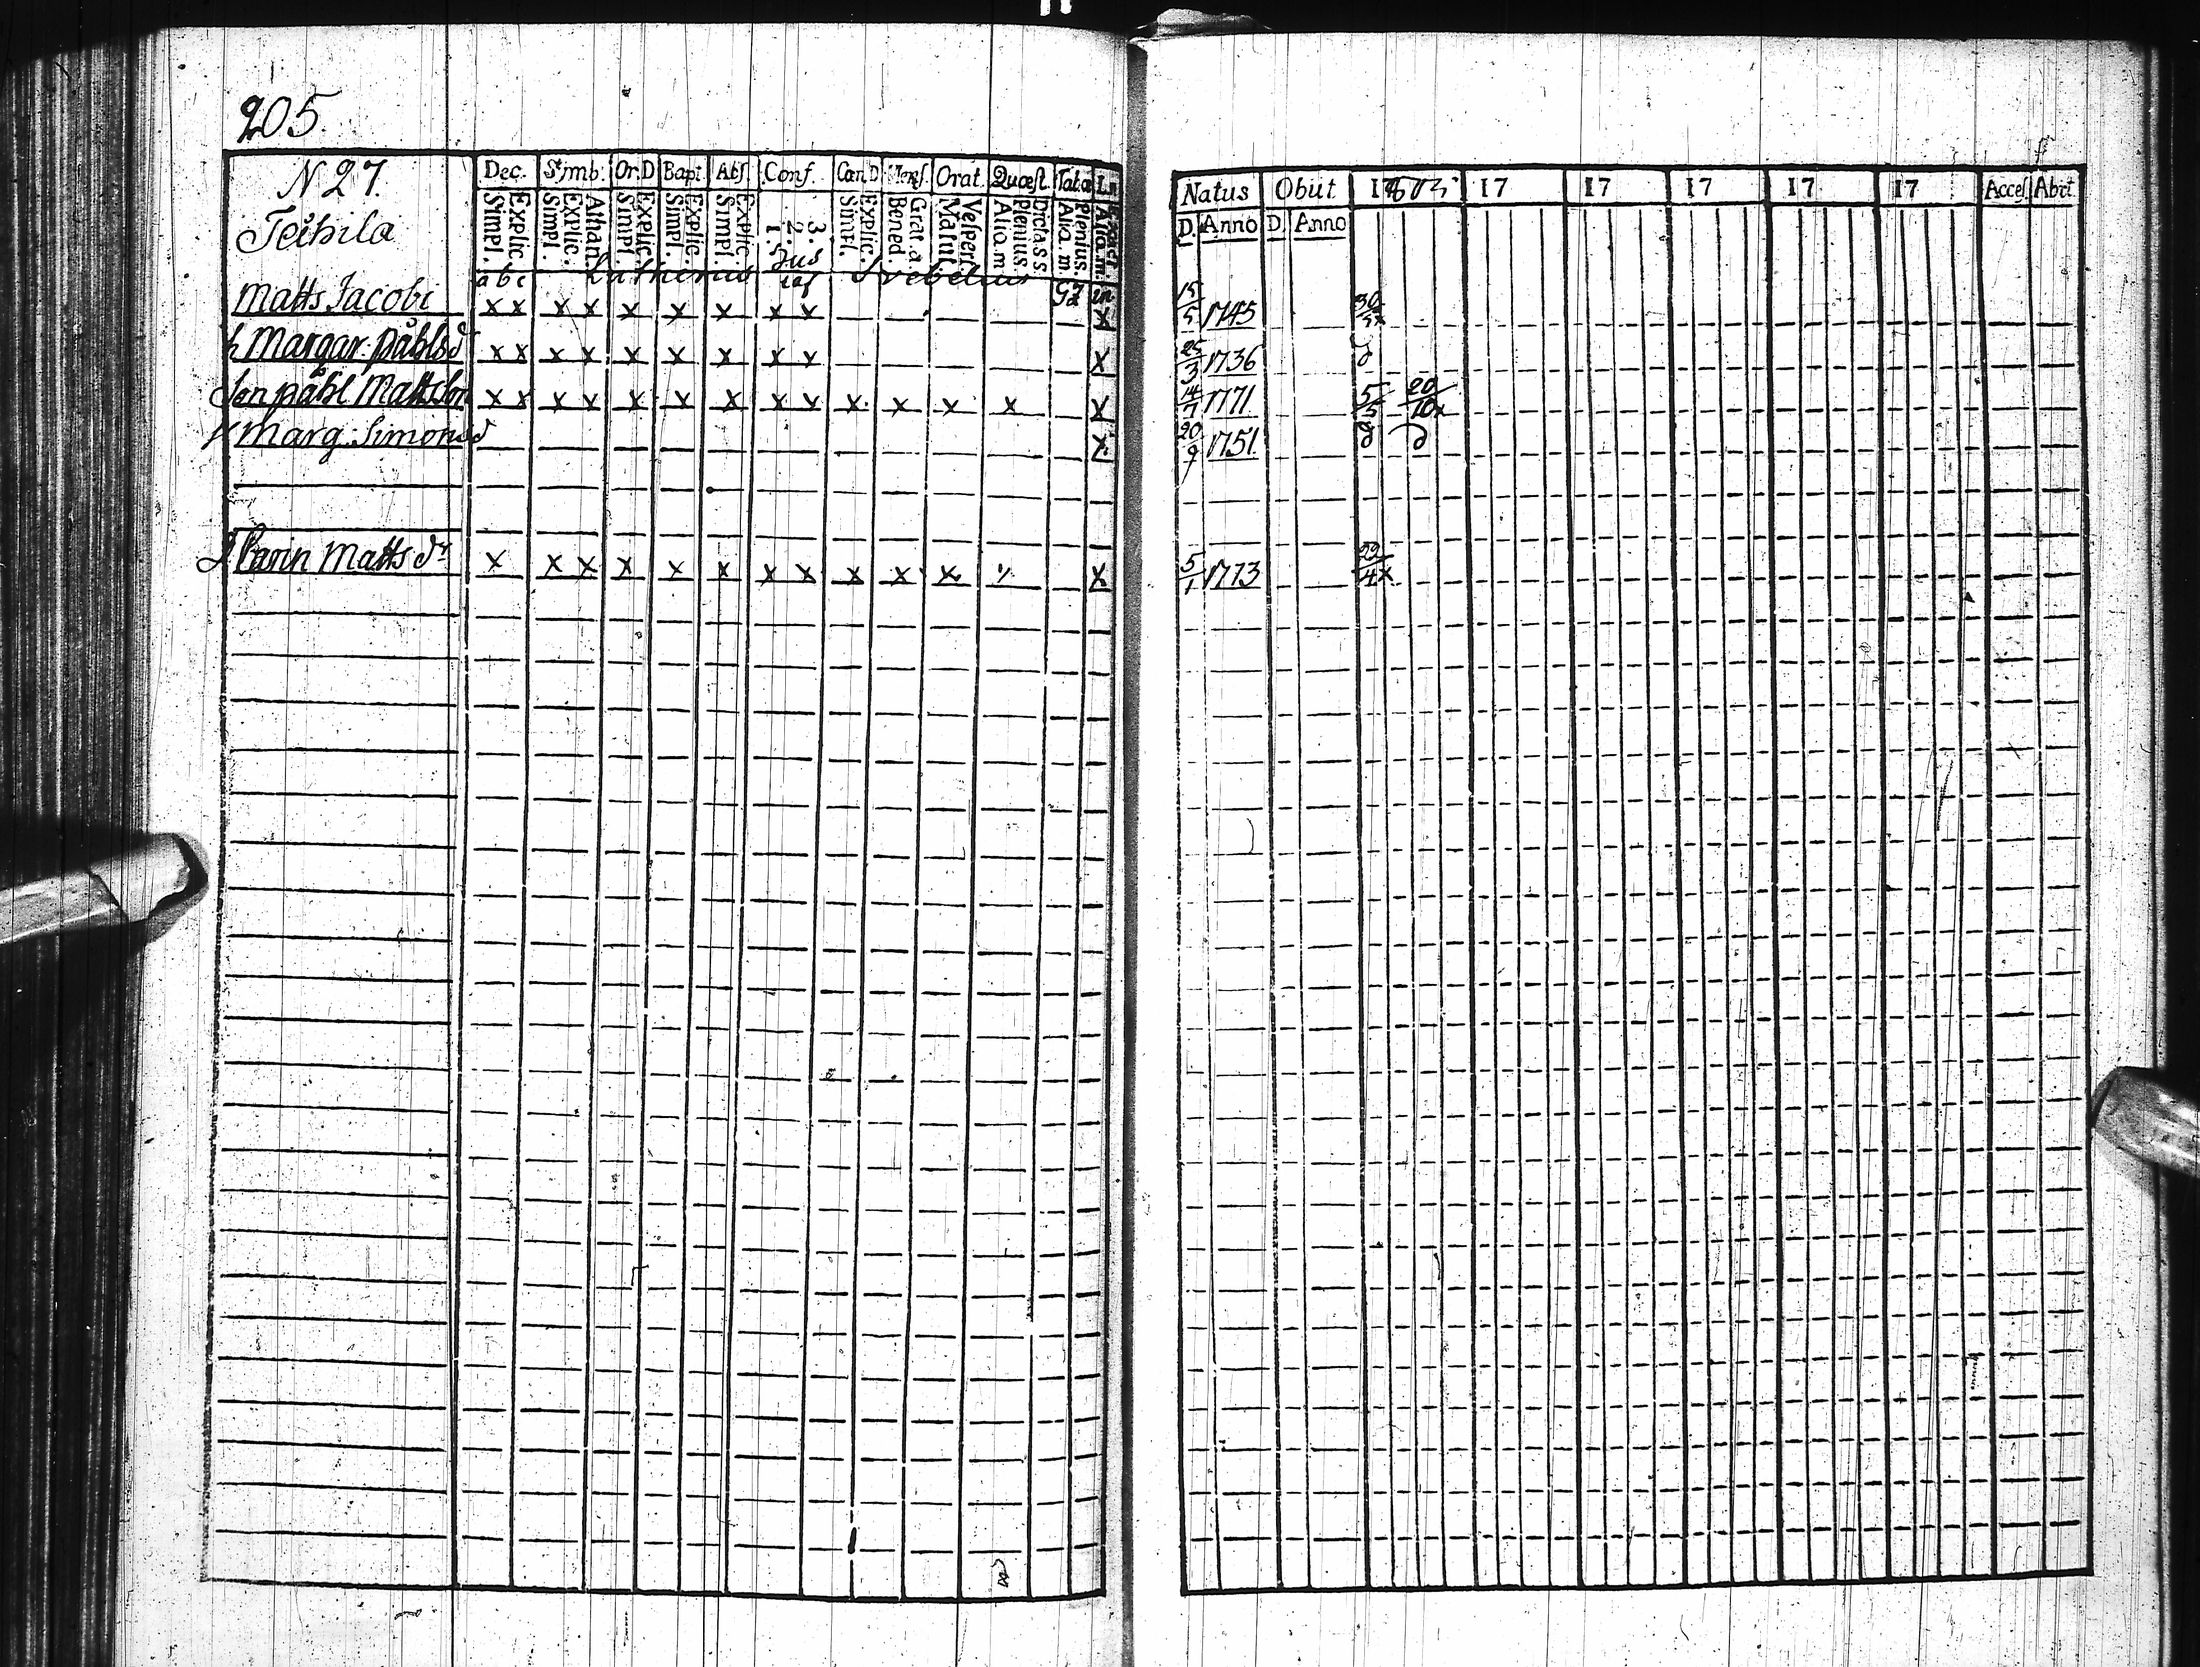 205
N 27.
Dec. Simb. Or.D Bapt. Abs. Conf. Can.D Mens. Orat. Quæst. Tabæ
Simpl. Explic. Simpl. Explic. Athan. Simpl. Explic. Simpl. Explic. Simpl. Explic. 1. 2. 3. Simpl. Explic. Bened. Grat. a Matut. Vesper. Alia. m Plenius. Dicta. s s Alia. m. Plenius. Alia. m. Exact.
abc Lutherus Svebelius
Matts Jacobi x x x x x x x x x x
h Margar. påhls d x x x x x x x x x x
Son påhl Mattsson x x x x x x x x x x x x x x
Marg. Simons d x
Carin Matts dr x x x x x x x x x x x x
Natus Obiit 17 17 17 17 17 17 Acces. Abit
D. Anno D. Anno
15/5 1745 30/5 x
25/3 1736
14/7 1771 5/5 20/10 x
20/9 1751
5/1 1773 22/4 x